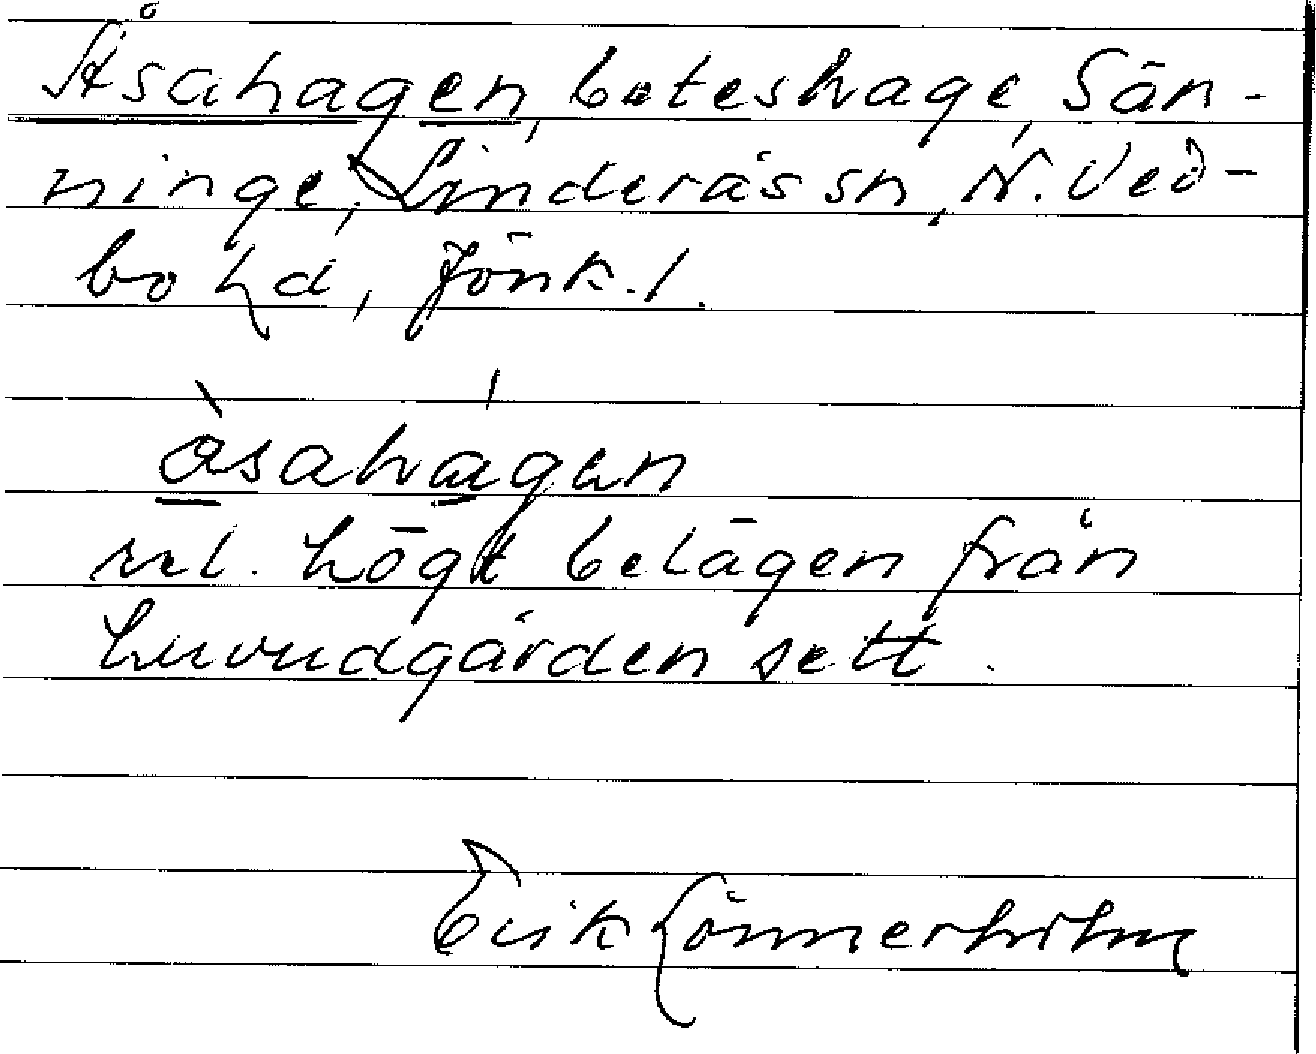 Åsahagen, beteshage, Sän-
ninge, Linderås sn, N. Ved-
bo hd, Jönk. l.
åsahagen
rel. högt belägen från
huvudgården sett.
Erik Lönnerholm